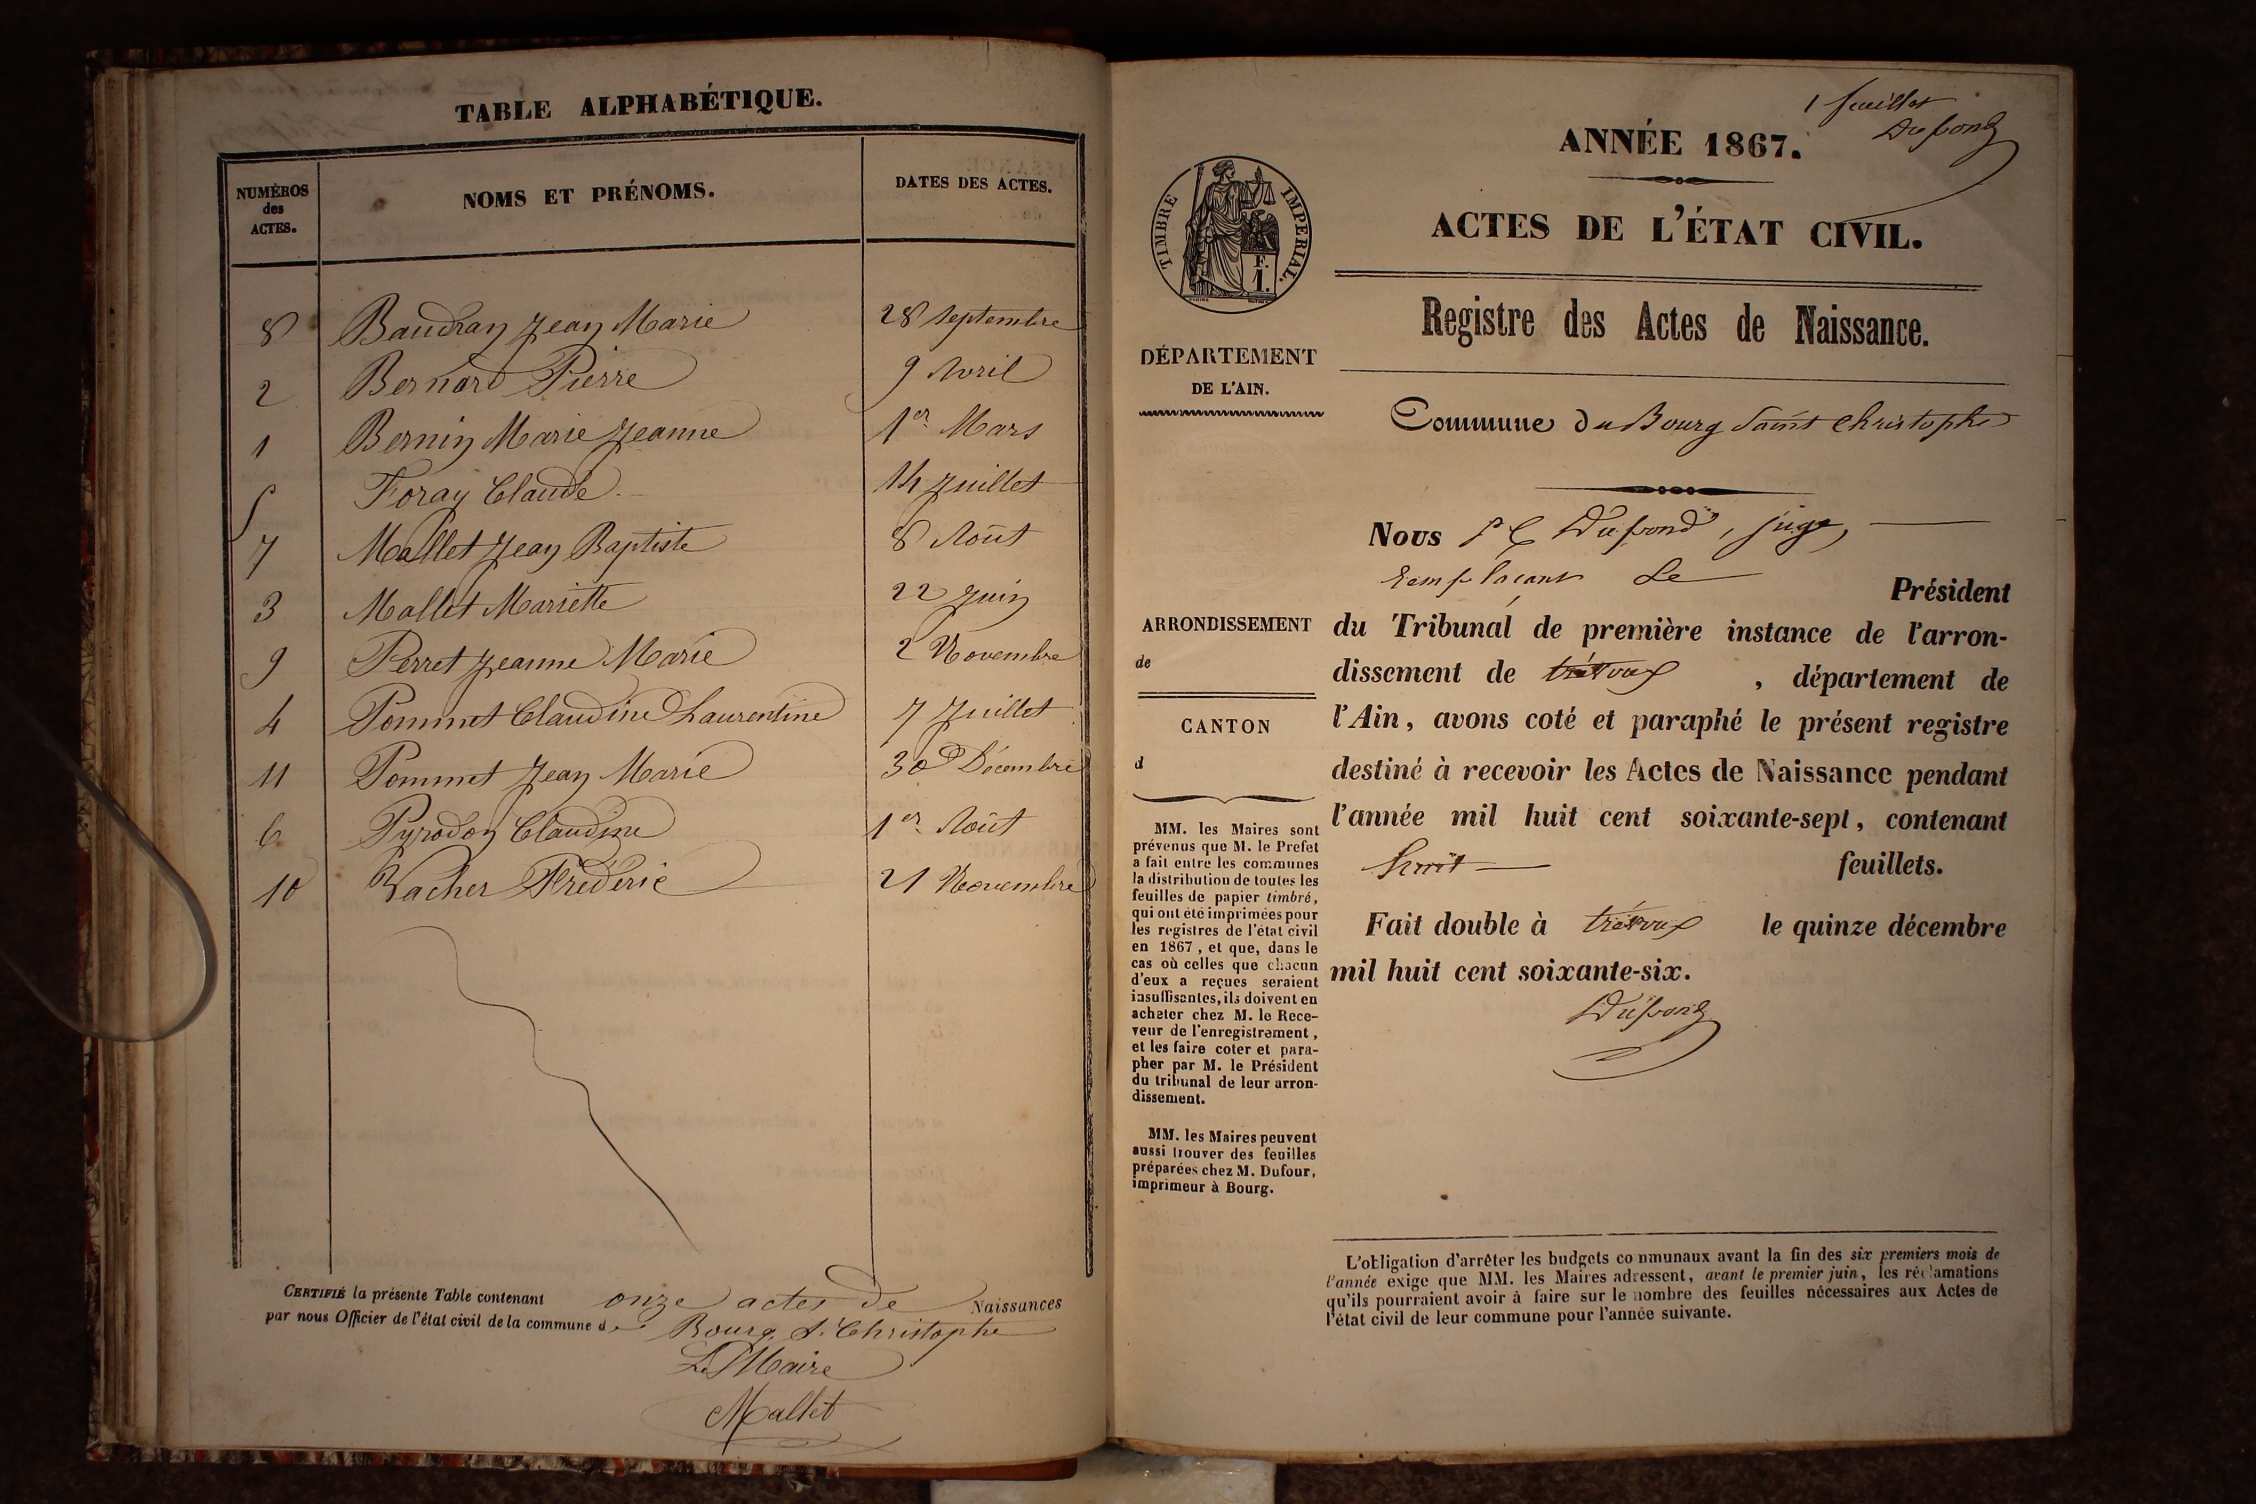 TABLE ALPHABÉTIQUE.
NUMÉROS des ACTES. NOMS ET PRÉNOMS. DATES DES ACTES.
8 Baudran Jean Marie 28 Septembre
2 Bernard Pierre 9 Avril
1 Bernin Marie Jeanne 1er Mars
5 Foray Claude 14 Juillet
7 Mallet Jean Baptiste 8 Août
3 Mallet Mariette 22 Juin
9 Perret Jeanne Marie 2 Novembre
4 Pommet Claudine Laurentine 7 Juillet
11 Pommet Jean Marie 30 Décembre
6 Pyrodon Claudine 1er Août
10 Vacher Frédéric 21 Novembre
CERTIFIÉ la présente Table contenant onze actes de Naissances
par nous Officier de l'état civil de la commune de Bourg St Christophe
Le Maire
Mallet
1 feuillet
Dufond
ANNÉE 1867.
ACTES DE L'ÉTAT CIVIL.
TIMBRE IMPERIAL.
F.
1.
Registre des Actes de Naissance.
DÉPARTEMENT
DE L'AIN.
Commune du Bourg Saint Christophe
Nous Dufond, juge,
remplaçant le Président
ARRONDISSEMENT
de
CANTON
d
du Tribunal de première instance de l'arron-
dissement de trévoux, département de
l'Ain, avons coté et paraphé le présent registre
destiné à recevoir les Actes de Naissance pendant
l'année mil huit cent soixante-sept, contenant
huit feuillets.
Fait double à trévoux le quinze décembre
mil huit cent soixante-six.
Dufond
MM. les Maires sont
prévenus que M. le Prefet
a fait entre les communes
la distribution de toutes les
feuilles de papier timbré,
qui ont été imprimées pour
les registres de l'état civil
en 1867, et que, dans le
cas où celles que chacun
d'eux a reçues seraient
insuffisantes, ils doivent en
acheter chez M. le Rece-
veur de l'enregistrement,
et les faire coter et para-
pher par M. le Président
du tribunal de leur arron-
dissement.
MM. les Maires peuvent
aussi trouver des feuilles
préparées chez M. Dufour,
imprimeur à Bourg.
L'obligation d'arrêter les budgets communaux avant la fin des six premiers mois de
l'année exige que MM. les Maires adressent, avant le premier juin, les réclamations
qu'ils pourraient avoir à faire sur le nombre des feuilles nécessaires aux Actes de
l'état civil de leur commune pour l'année suivante.